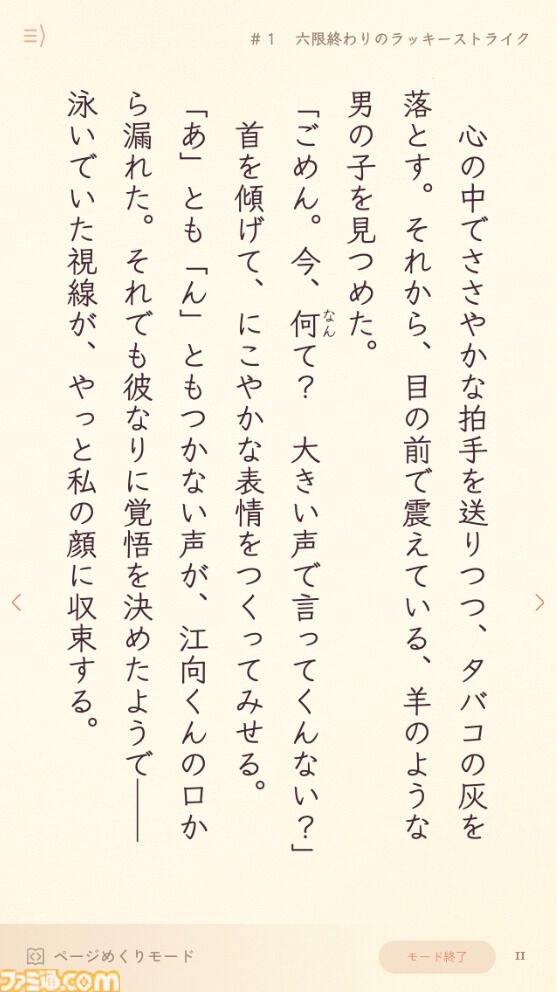 #1 六限終わりのラッキーストライク
心の中でささやかな拍手を送りつつ、タバコの灰を
落とす。それから、目の前で震えている、羊のような
男の子を見つめた。
「ごめん。今、何て？　大きい声で言ってくんない？」
なん
首を傾げて、にこやかな表情をつくってみせる。
「あ」とも「ん」ともつかない声が、江向くんの口か
ら漏れた。それでも彼なりに覚悟を決めたようで――
泳いでいた視線が、やっと私の顔に収束する。
ページめくりモード
モード終了
ファミ通.com